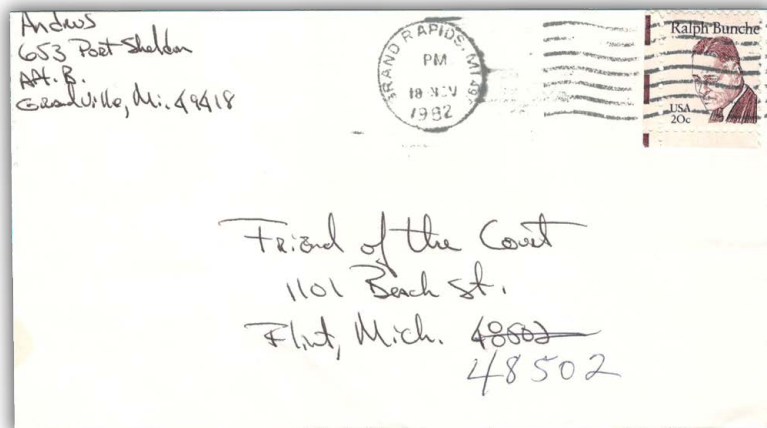 Andrus
653 Port Sheldon
Apt. B.
Grandville, Mi. 49418
GRAND RAPIDS, MI 49
PM
18 NOV
1982
Ralph Bunche
USA
20c
Friend of the Court
1101 Beach St.
Flint, Mich. 48502
48502